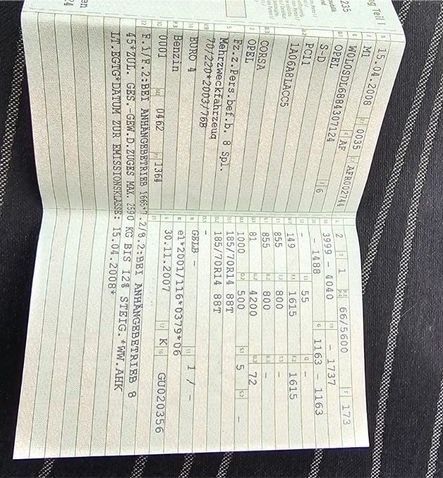 15.04.2008 0035 AFR002744
M1 AF
W0L0SDL6884307124 6
OPEL
S-D
PC11
1A06A8LACC5
CORSA
OPEL
Fz.z.Pers.bef.b. 8 Spl.
Mehrzweckfahrzeug
70/220*2003/76B
EURO 4
Benzin
0001 0462 1364
2 1 66/5600 173
3999 - 4040 - 1737
- 1488 1163 - 1163
- 55 -
149 1615 1615
855 800 -
855 800 -
81 4200 72
1000 500 5 -
185/70R14 88T
185/70R14 88T
-
GELB - 1 / -
e1*2001/116*0379*06
30.11.2007 K GU020356
F.1/F.2:BEI ANHÄNGEBETRIEB 1665*7.2/8.2:BEI ANHÄNGEBETRIEB 8
45*ZUL. GES.-GEW.D.ZUGES MAX. 2590 KG BIS 12% STEIG.*WW.AHK
LT.EGTG*DATUM ZUR EMISSIONSKLASSE: 15.04.2008*